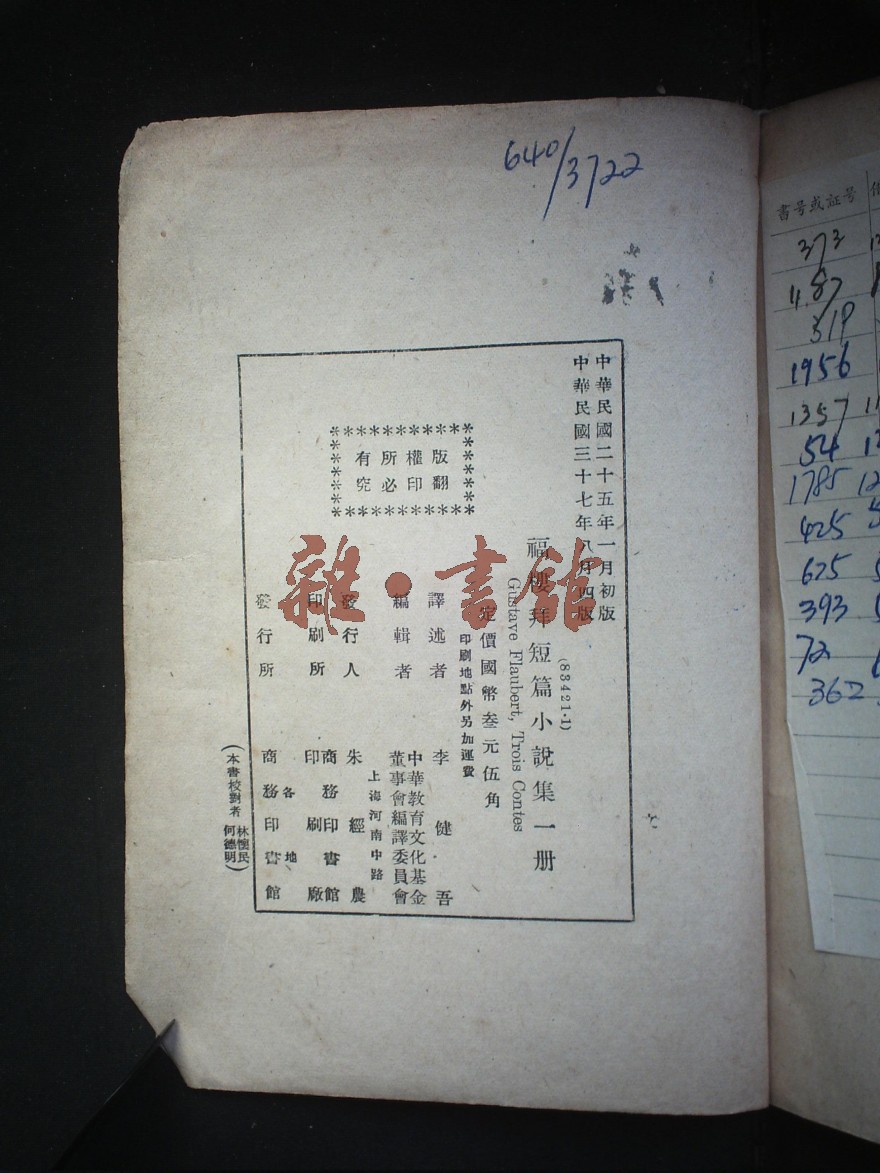 640/3722
中華民國二十五年一月初版
中華民國三十七年八月四版
(83421-1)
福樓拜短篇小說集一册
Gustave Flaubert, Trois Contes
定價國幣叁元伍角
印刷地點外另加運費
版權所有
翻印必究
譯述者 李健吾
編輯者 中華教育文化基金董事會編譯委員會
上海河南中路
發行人 朱經農
印刷所 商務印書館印刷廠
各地
發行所 商務印書館
(本書校對者 林懷民 何德明)
雜·書館
書号或証号
373
1187
319
1956
1357
54
1785
425
625
393
72
362